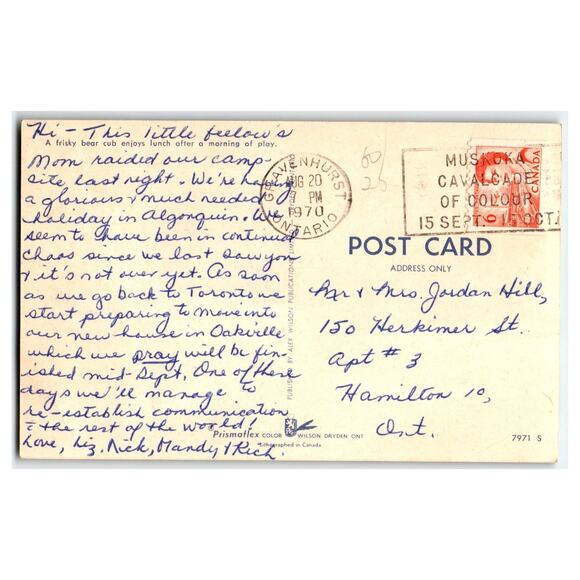 Hi - This little feelow's
A frisky bear cub enjoys lunch after a morning of play.
Mom raided our camp-
site last night. We're having
a glorious & much needed
holiday in Algonquin. We
seem to have been in continual
chaos since we last saw you
& it's not over yet. As soon
as we go back to Toronto we
start preparing to move into
our new house in Oakville
which we pray will be fin-
ished mid-Sept. One of these
days we'll manage to
re-establish communication
c the rest of the world!
Love, Liz, Nick, Mandy & Rich.
GRAVENHURST
AUG 20
7 PM
1970
ONTARIO
60
25
MUSKOKA
CAVALCADE
OF COLOUR
15 SEPT. - 15 OCT.
CANADA
6
POST CARD
ADDRESS ONLY
Mr & Mrs. Jordan Hill,
150 Herkimer St.
Apt # 3
Hamilton 10,
Ont.
PUBLISHED BY ALEX WILSON PUBLICATIONS LIMITED
Prismaflex COLOR WILSON DRYDEN ONT
Lithographed in Canada
7971 S